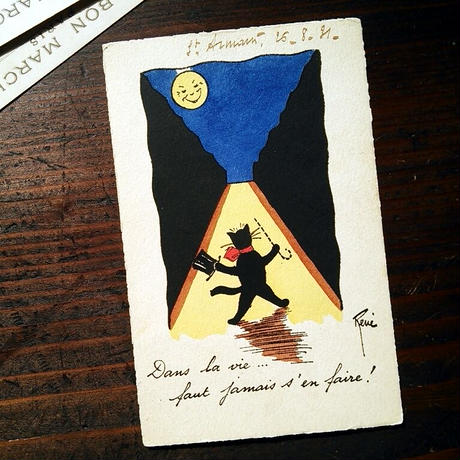 BON MARCH
PARIS
MARCH
St Armand, 26_8_31_
René
Dans la vie...
faut jamais s'en faire!